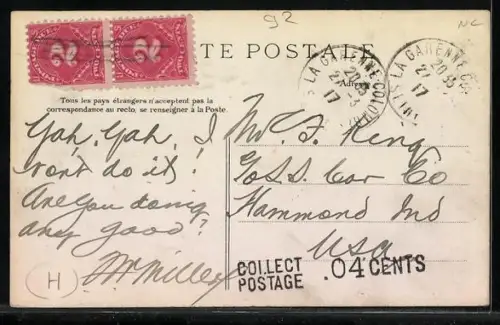 92
NC
2 2
TE POSTALE
LA GARENNE-COLO
20 35
27 3
17
LA GARENNE-CO
20 35
27
17
Tous les pays étrangers n'acceptent pas la
correspondance au recto, se renseigner à la Poste.
Yah, Yah, I
won't do it!
Are you doing
any good?
Miller
H
Mr. F. King
Car Co
Hammond Ind
USA
COLLECT
POSTAGE .04 CENTS